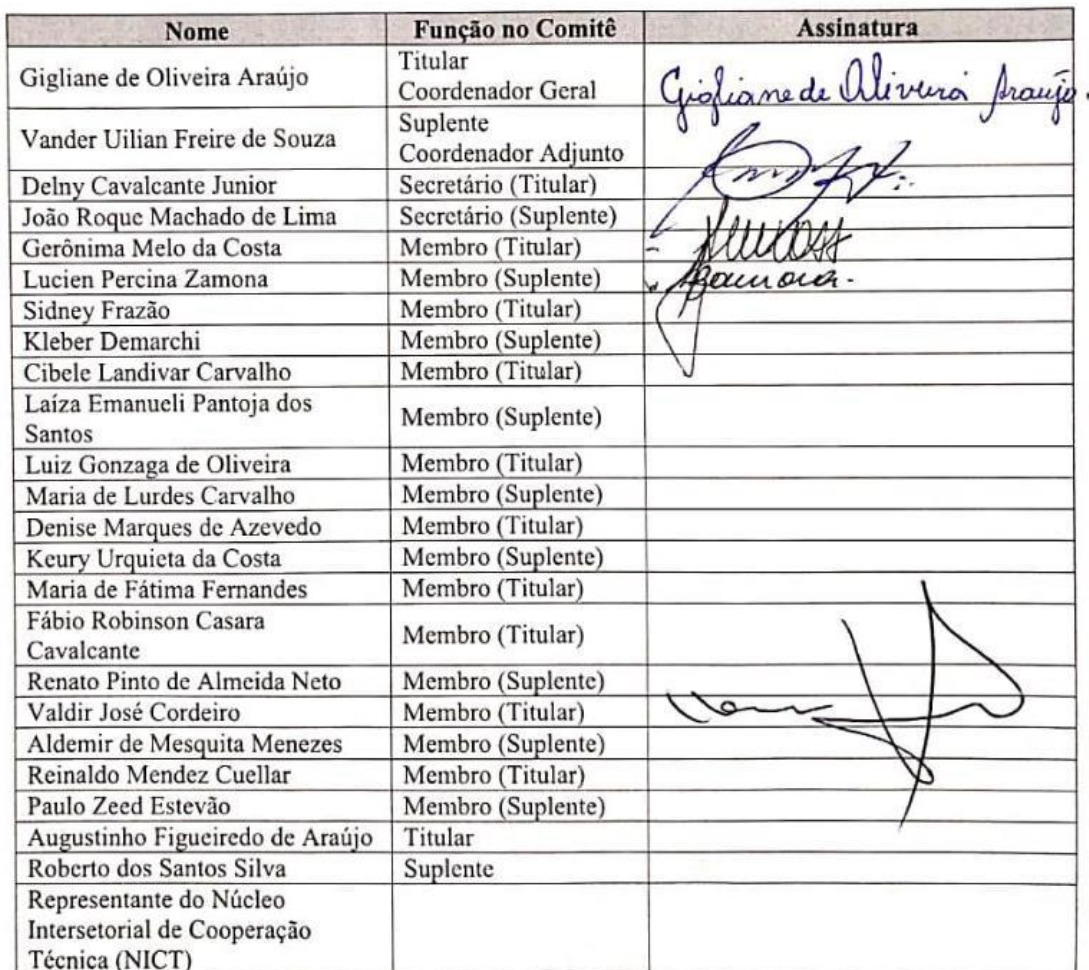 Nome Função no Comitê Assinatura
Gigliane de Oliveira Araújo Titular
Coordenador Geral Gigliane de Oliveira Araújo.
Vander Uilian Freire de Souza Suplente
Coordenador Adjunto
Delny Cavalcante Junior Secretário (Titular)
João Roque Machado de Lima Secretário (Suplente)
Gerônima Melo da Costa Membro (Titular)
Lucien Percina Zamona Membro (Suplente) Zamona.
Sidney Frazão Membro (Titular)
Kleber Demarchi Membro (Suplente)
Cibele Landivar Carvalho Membro (Titular)
Laíza Emanueli Pantoja dos
Santos Membro (Suplente)
Luiz Gonzaga de Oliveira Membro (Titular)
Maria de Lurdes Carvalho Membro (Suplente)
Denise Marques de Azevedo Membro (Titular)
Keury Urquieta da Costa Membro (Suplente)
Maria de Fátima Fernandes Membro (Titular)
Fábio Robinson Casara
Cavalcante Membro (Titular)
Renato Pinto de Almeida Neto Membro (Suplente)
Valdir José Cordeiro Membro (Titular)
Aldemir de Mesquita Menezes Membro (Suplente)
Reinaldo Mendez Cuellar Membro (Titular)
Paulo Zeed Estevão Membro (Suplente)
Augustinho Figueiredo de Araújo Titular
Roberto dos Santos Silva Suplente
Representante do Núcleo
Intersetorial de Cooperação
Técnica (NICT)